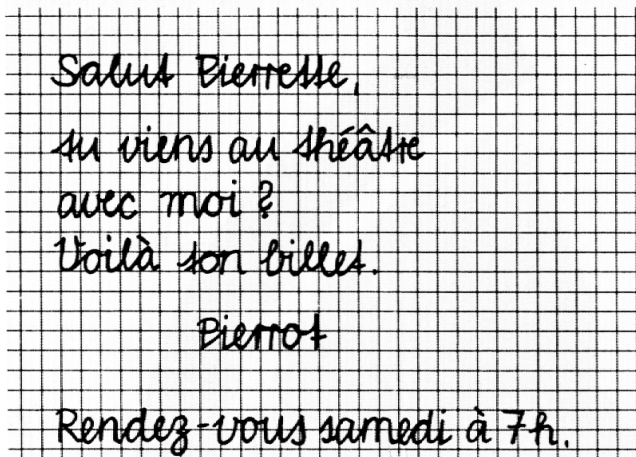 Salut Pierrette,
tu viens au théâtre
avec moi ?
Voilà ton billet.
Pierrot
Rendez-vous samedi à 7h.